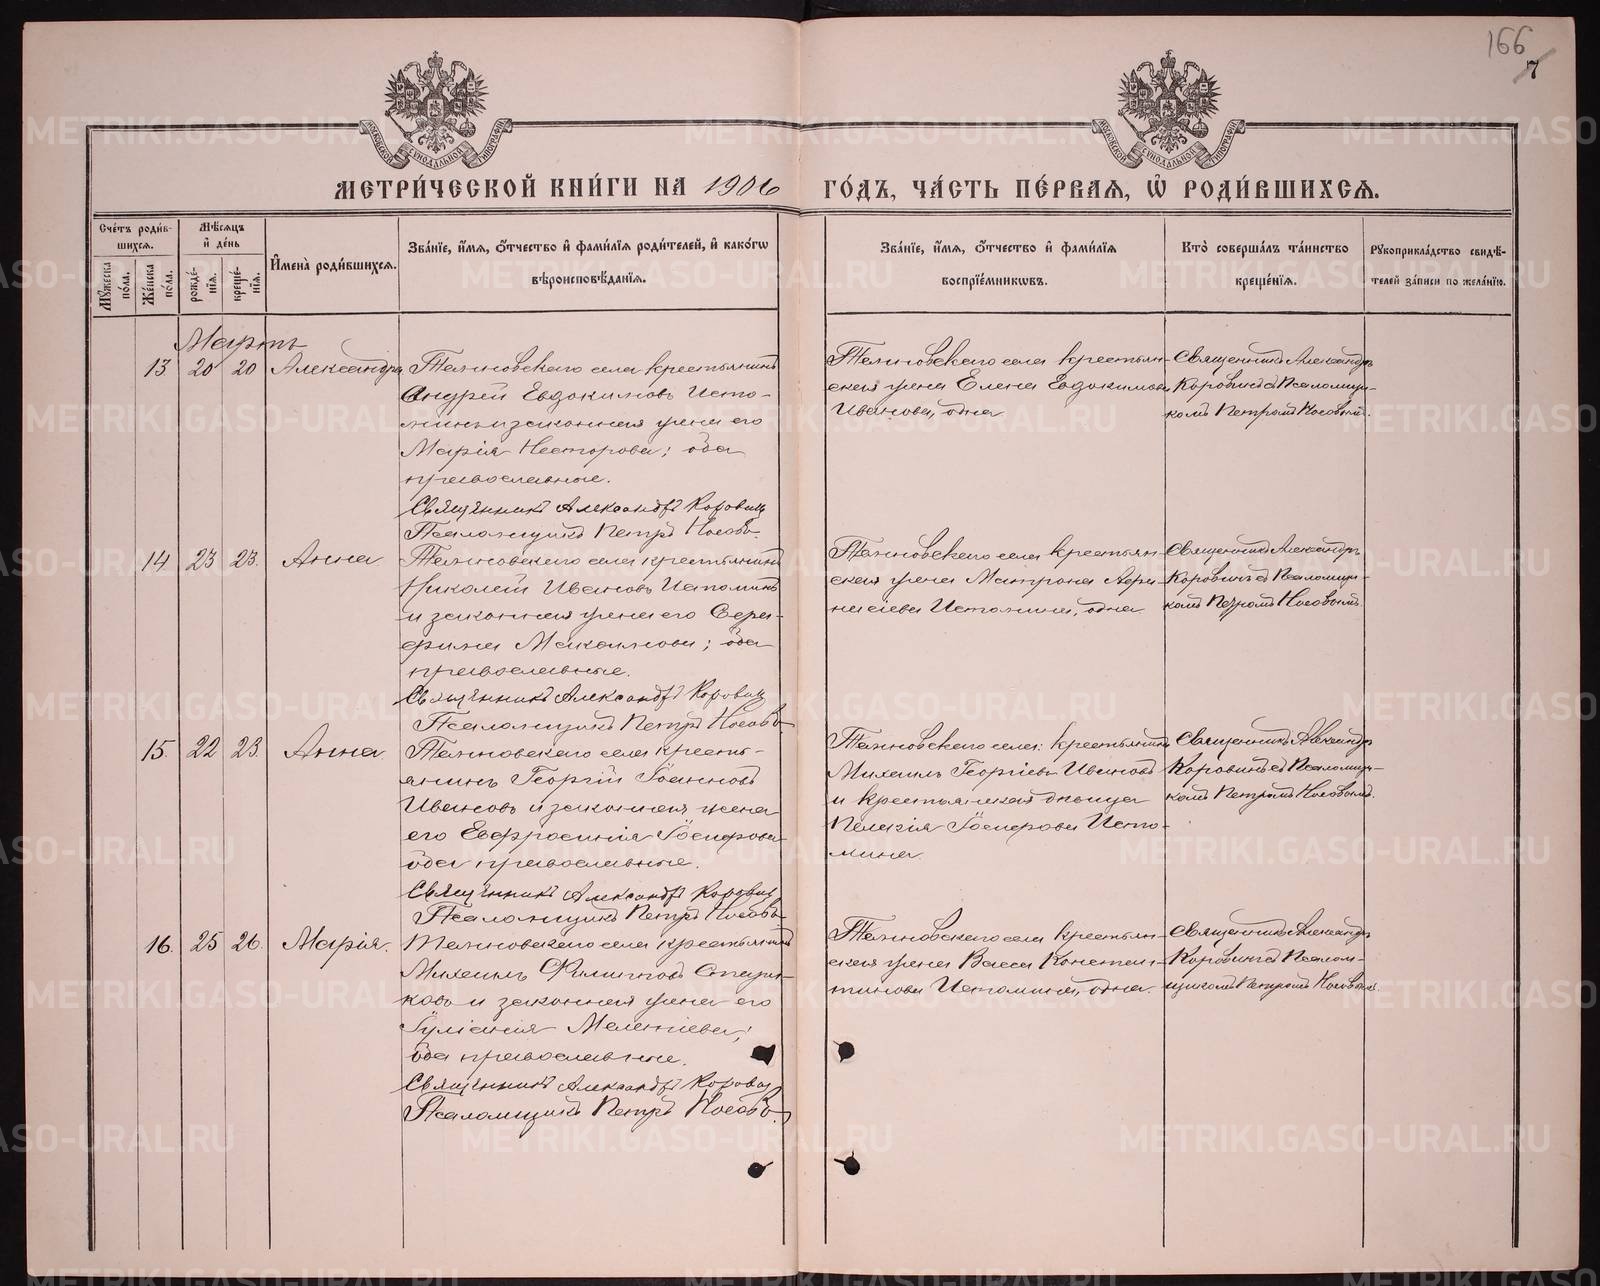 166
7
МОСКОВСКОЙ СѴНОДАЛЬНОЙ ТИПОГРАФІИ
МОСКОВСКОЙ СѴНОДАЛЬНОЙ ТИПОГРАФІИ
МЕТРИ́ЧЕСКОЙ КНИ́ГИ НА 1906 ГО́ДЪ, ЧА́СТЬ ПЕ́РВАЯ, Ѡ҆ РОДИ́ВШИХСЯ.
Сче́тъ роди́в-
шихся.
Му́жеска
по́ла.
Же́нска
по́ла.
Мѣ́сяцъ
и҆ де́нь
рожде́-
нїя.
креще́-
нїя.
И҆мена̀ роди́вшихся.
Зва́нїе, и҆́мя, ѻ҆́тчество и҆ фами́лїя роди́телей, и҆ како́гѡ
вѣроисповѣ́данїя.
Зва́нїе, и҆́мя, ѻ҆́тчество и҆ фами́лїя
воспрїе́мникѡвъ.
Кто̀ соверша́лъ та́инство
креще́нїя.
Рꙋкоприкла́дство свидѣ́-
телей за́писи по жела́нїю.
Мартъ
13 20 20 Александра
села крестьянинъ
Андрей Евдокимовъ Исто-
минъ и законная жена его
Марія Несторова; оба
православные.
Священникъ Александръ Коровин
Псаломщикъ Петръ Носовъ.
села крестьян-
ская жена Елена Евдокимова
Иванова, одна
Священникъ Александръ
Коровинъ съ Псаломщи-
комъ Петромъ Носовымъ.
14 23 23. Анна
села крестьянинъ
Николай Ивановъ Истоминъ
и законная жена его Сера-
фима Максимова; оба
православные.
Священникъ Александръ Коровин
Псаломщикъ Петръ Носовъ
села крестьян-
ская жена Матрона Афа-
насіева Истомина, одна
Священникъ Александръ
Коровинъ съ Псаломщи-
комъ Петромъ Носовымъ.
15. 22 23. Анна
села кресть-
янинъ Георгій Іоанновъ
Ивановъ и законная жена
его Евфросинія Іосифова
оба православные.
Священникъ Александръ Коровин
Псаломщикъ Петръ Носовъ
села: крестьянинъ
Михаилъ Георгіевъ Ивановъ
и крестьянская дѣвица
Пелагія Іосифова Исто-
мина.
Священникъ Александръ
Коровинъ съ Псаломщи-
комъ Петромъ Носовымъ.
16. 25 26. Марія.
села крестьянинъ
Михаилъ Филипповъ Стари-
ковъ и законная жена его
Іуліанія Мелентіева;
оба православные.
Священникъ Александръ Коровин
Псаломщикъ Петръ Носовъ.
села крестьян-
ская жена Васса Констан-
тинова Истомина, одна.
Священникъ Александръ
Коровинъ съ Псалом-
щикомъ Петромъ Носовымъ.
METRIKI.GASO-URAL.RU